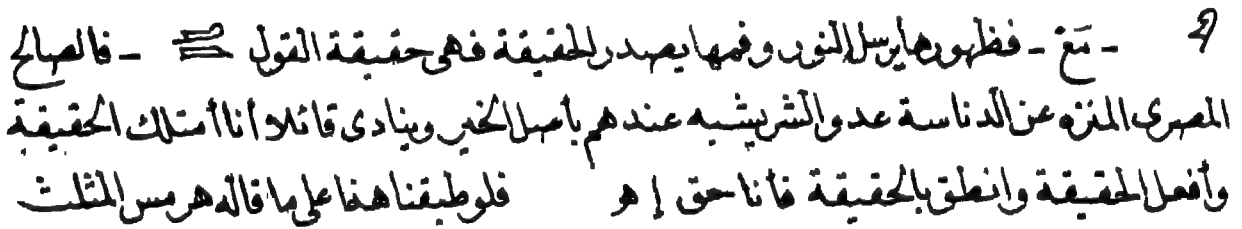 - مَعْ - فظهورها يرسل النور وفمها يصدر الحقيقة فهى حقيقة القول - فالصالح
المصرى المنزه عن الدناسة عدو الشر يشبه عندهم بأصل الخير وينادى قائلا أنا أمتلك الحقيقة
وأفعل الحقيقة وانطق بالحقيقة فأنا حق إ هو فلو طبقنا هذا على ما قاله هرمس المثلث